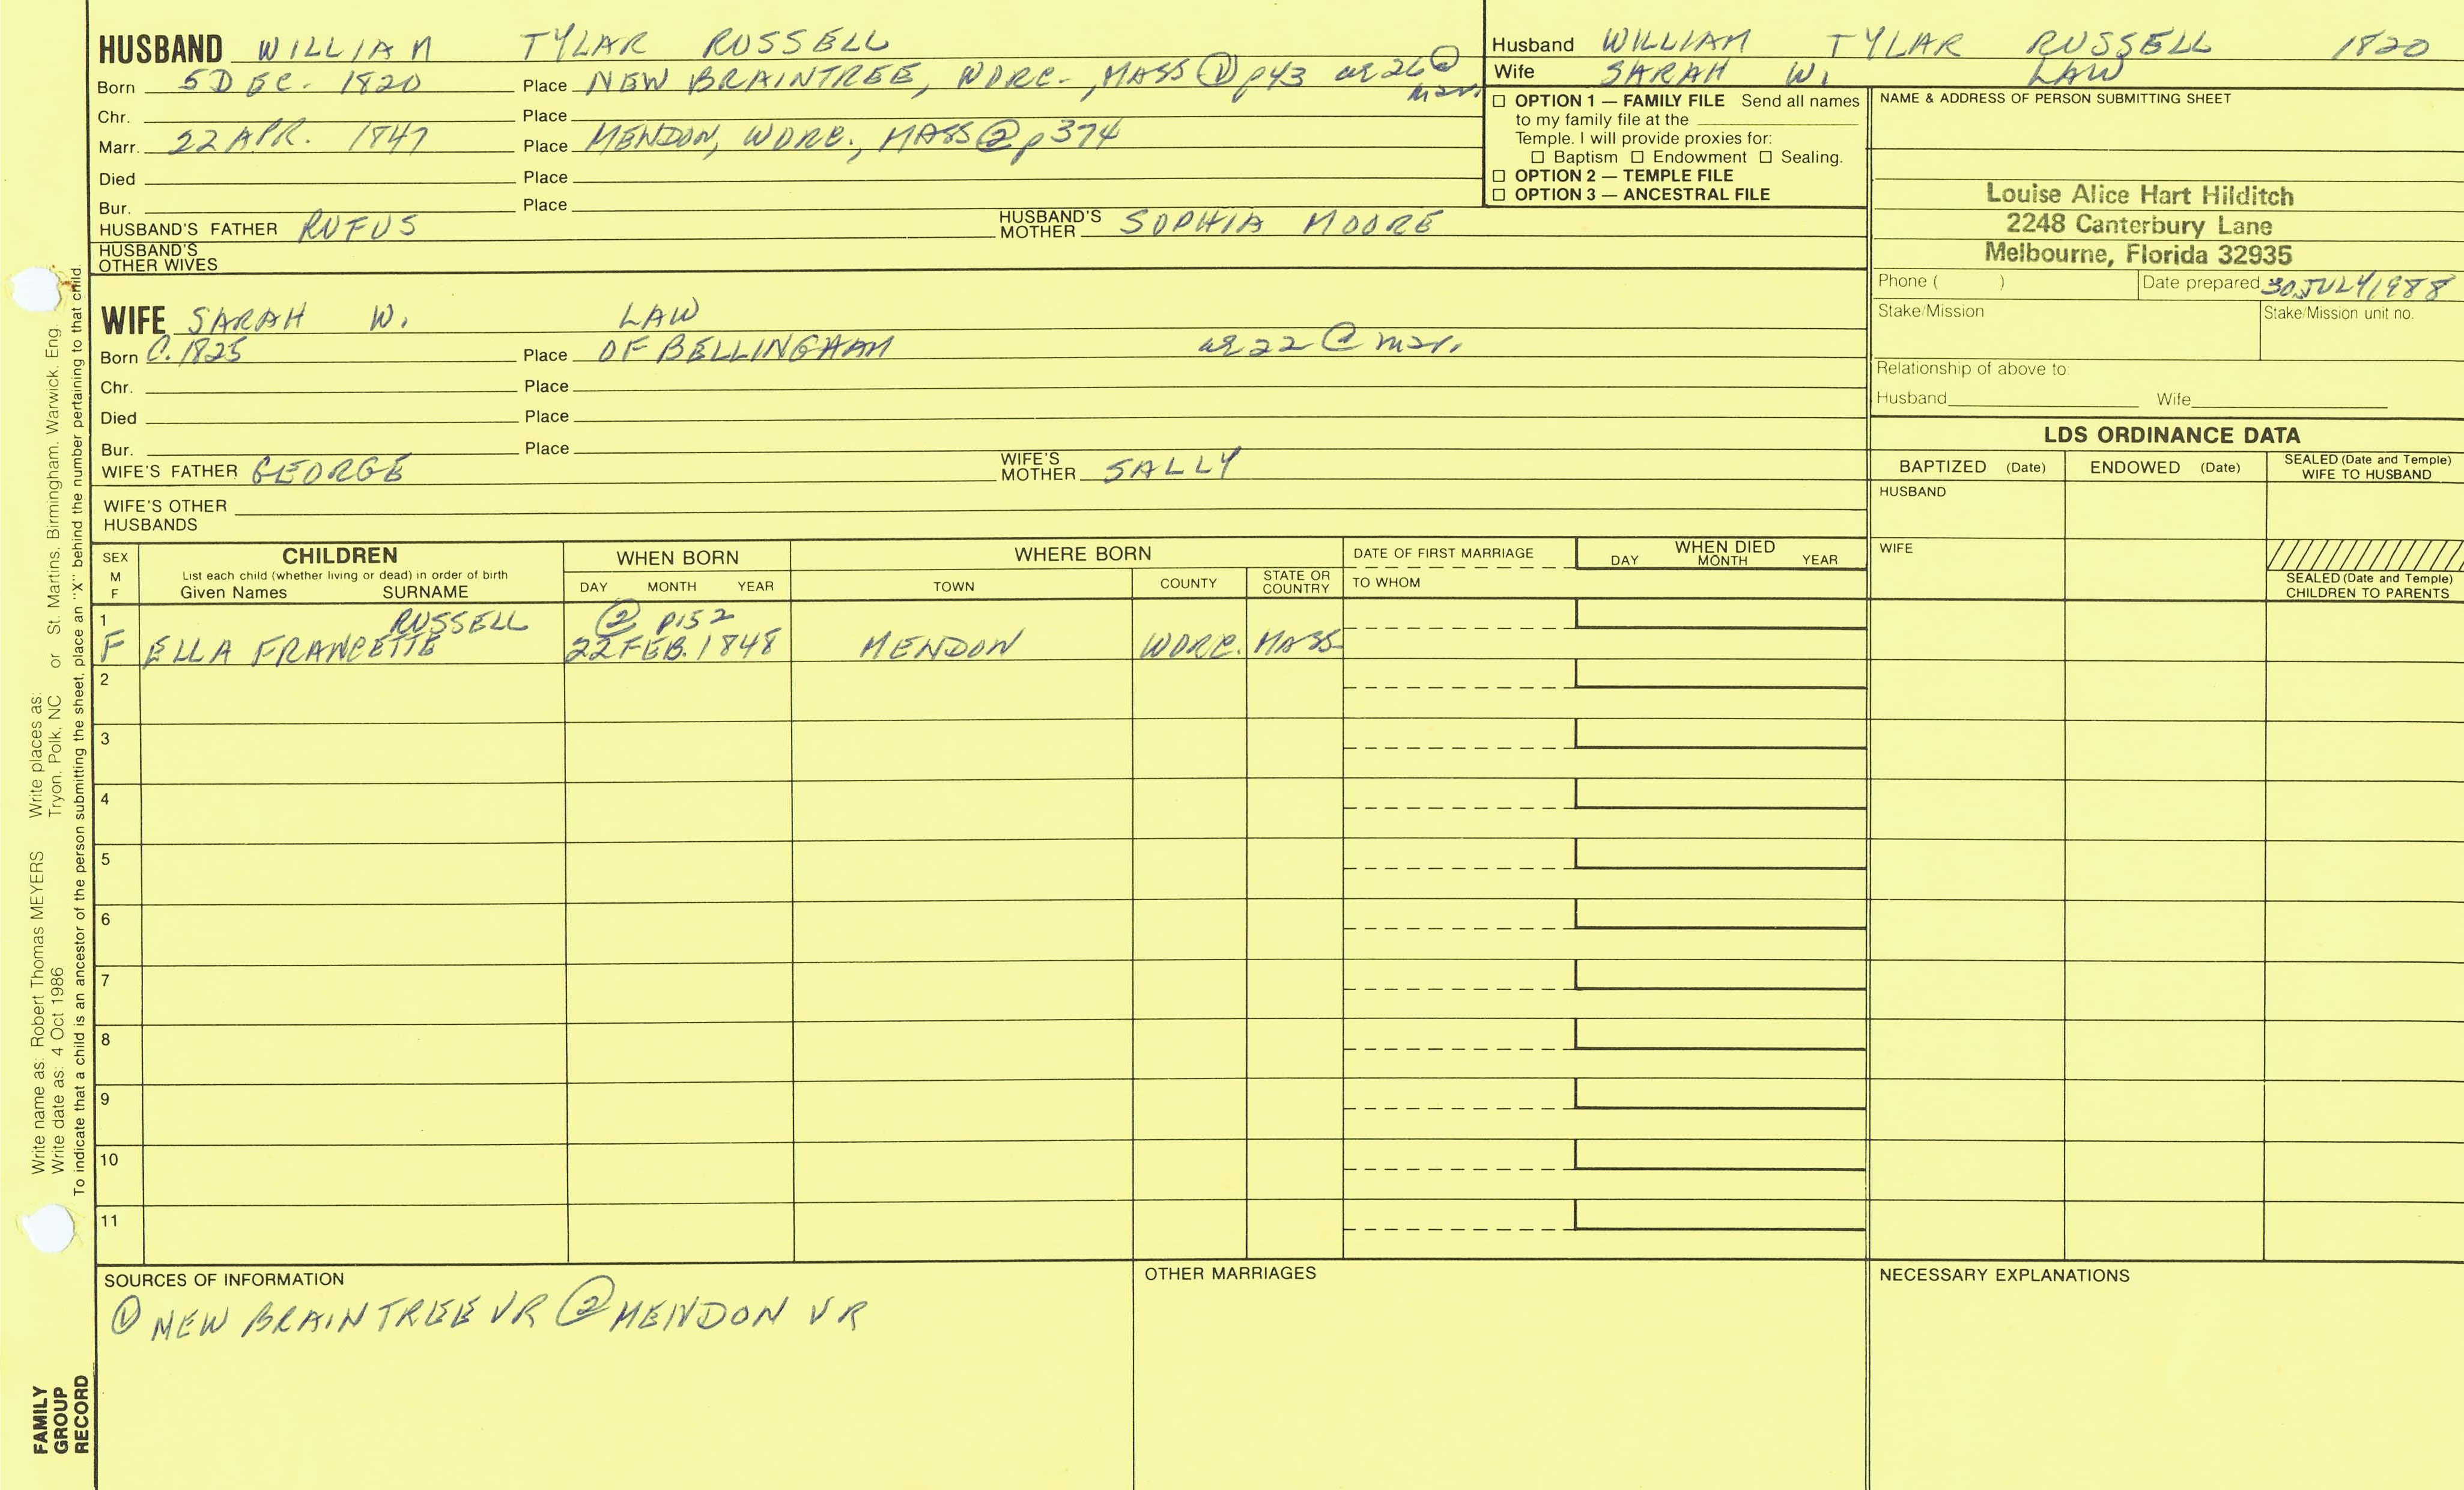 HUSBAND WILLIAM TYLAR RUSSELL
Born 5 DEC. 1820 Place NEW BRAINTREE, WORC., MASS ① p43 ae 26 @ mar.
Chr. Place
Marr. 22 APR. 1847 Place MENDON, WORC., MASS ② p374
Died Place
Bur. Place
HUSBAND'S FATHER RUFUS HUSBAND'S MOTHER SOPHIA MOORE
HUSBAND'S OTHER WIVES
WIFE SARAH W. LAW
Born C. 1825 Place OF BELLINGHAM ae 22 @ mar.
Chr. Place
Died Place
Bur. Place
WIFE'S FATHER GEORGE WIFE'S MOTHER SALLY
WIFE'S OTHER HUSBANDS
Husband WILLIAM TYLAR RUSSELL 1820
Wife SARAH W. LAW
☐ OPTION 1 — FAMILY FILE Send all names
to my family file at the
Temple. I will provide proxies for:
☐ Baptism ☐ Endowment ☐ Sealing.
☐ OPTION 2 — TEMPLE FILE
☐ OPTION 3 — ANCESTRAL FILE
NAME & ADDRESS OF PERSON SUBMITTING SHEET
Louise Alice Hart Hilditch
2248 Canterbury Lane
Melbourne, Florida 32935
Phone ( ) Date prepared 30 JULY 1988
Stake/Mission Stake/Mission unit no.
Relationship of above to:
Husband Wife
LDS ORDINANCE DATA
BAPTIZED (Date) ENDOWED (Date) SEALED (Date and Temple) WIFE TO HUSBAND
HUSBAND
WIFE
SEALED (Date and Temple) CHILDREN TO PARENTS
SEX M F
CHILDREN
List each child (whether living or dead) in order of birth
Given Names SURNAME
WHEN BORN
DAY MONTH YEAR
WHERE BORN
TOWN COUNTY STATE OR COUNTRY
DATE OF FIRST MARRIAGE
TO WHOM
WHEN DIED
DAY MONTH YEAR
1 RUSSELL ② P152
F ELLA FRANCETTE 22 FEB. 1848 MENDON WORC. MASS
2
3
4
5
6
7
8
9
10
11
SOURCES OF INFORMATION
① NEW BRAINTREE VR ② MENDON VR
OTHER MARRIAGES
NECESSARY EXPLANATIONS
Write name as: Robert Thomas MEYERS Write places as:
Write date as: 4 Oct 1986 Tryon, Polk, NC or St. Martins, Birmingham, Warwick, Eng
To indicate that a child is an ancestor of the person submitting the sheet, place an "X" behind the number pertaining to that child.
FAMILY
GROUP
RECORD